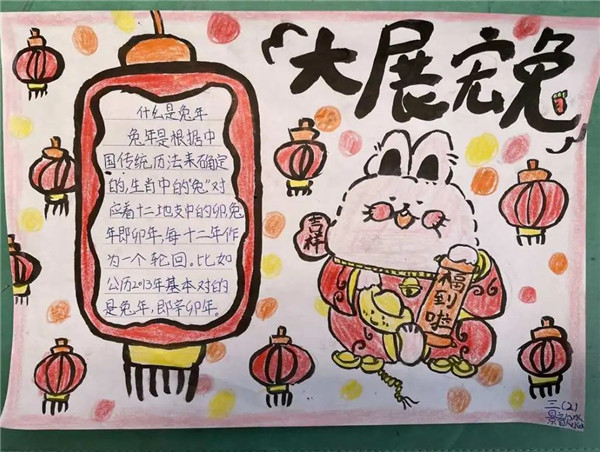 大展宏兔
什么是兔年
兔年是根据中
国传统历法来确定
的,生肖中的“兔”对
应着十二地支中的卯,兔
年即卯年,每十二年作
为一个轮回。比如
公历2013年基本对的
是兔年,即辛卯年。
吉祥
福到啦
三(2)